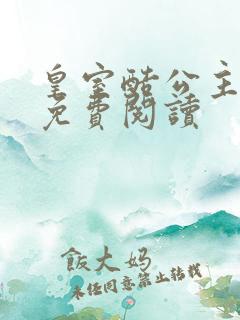 皇室酷公主
免費閱讀
飯大妈
未经同意禁止转载